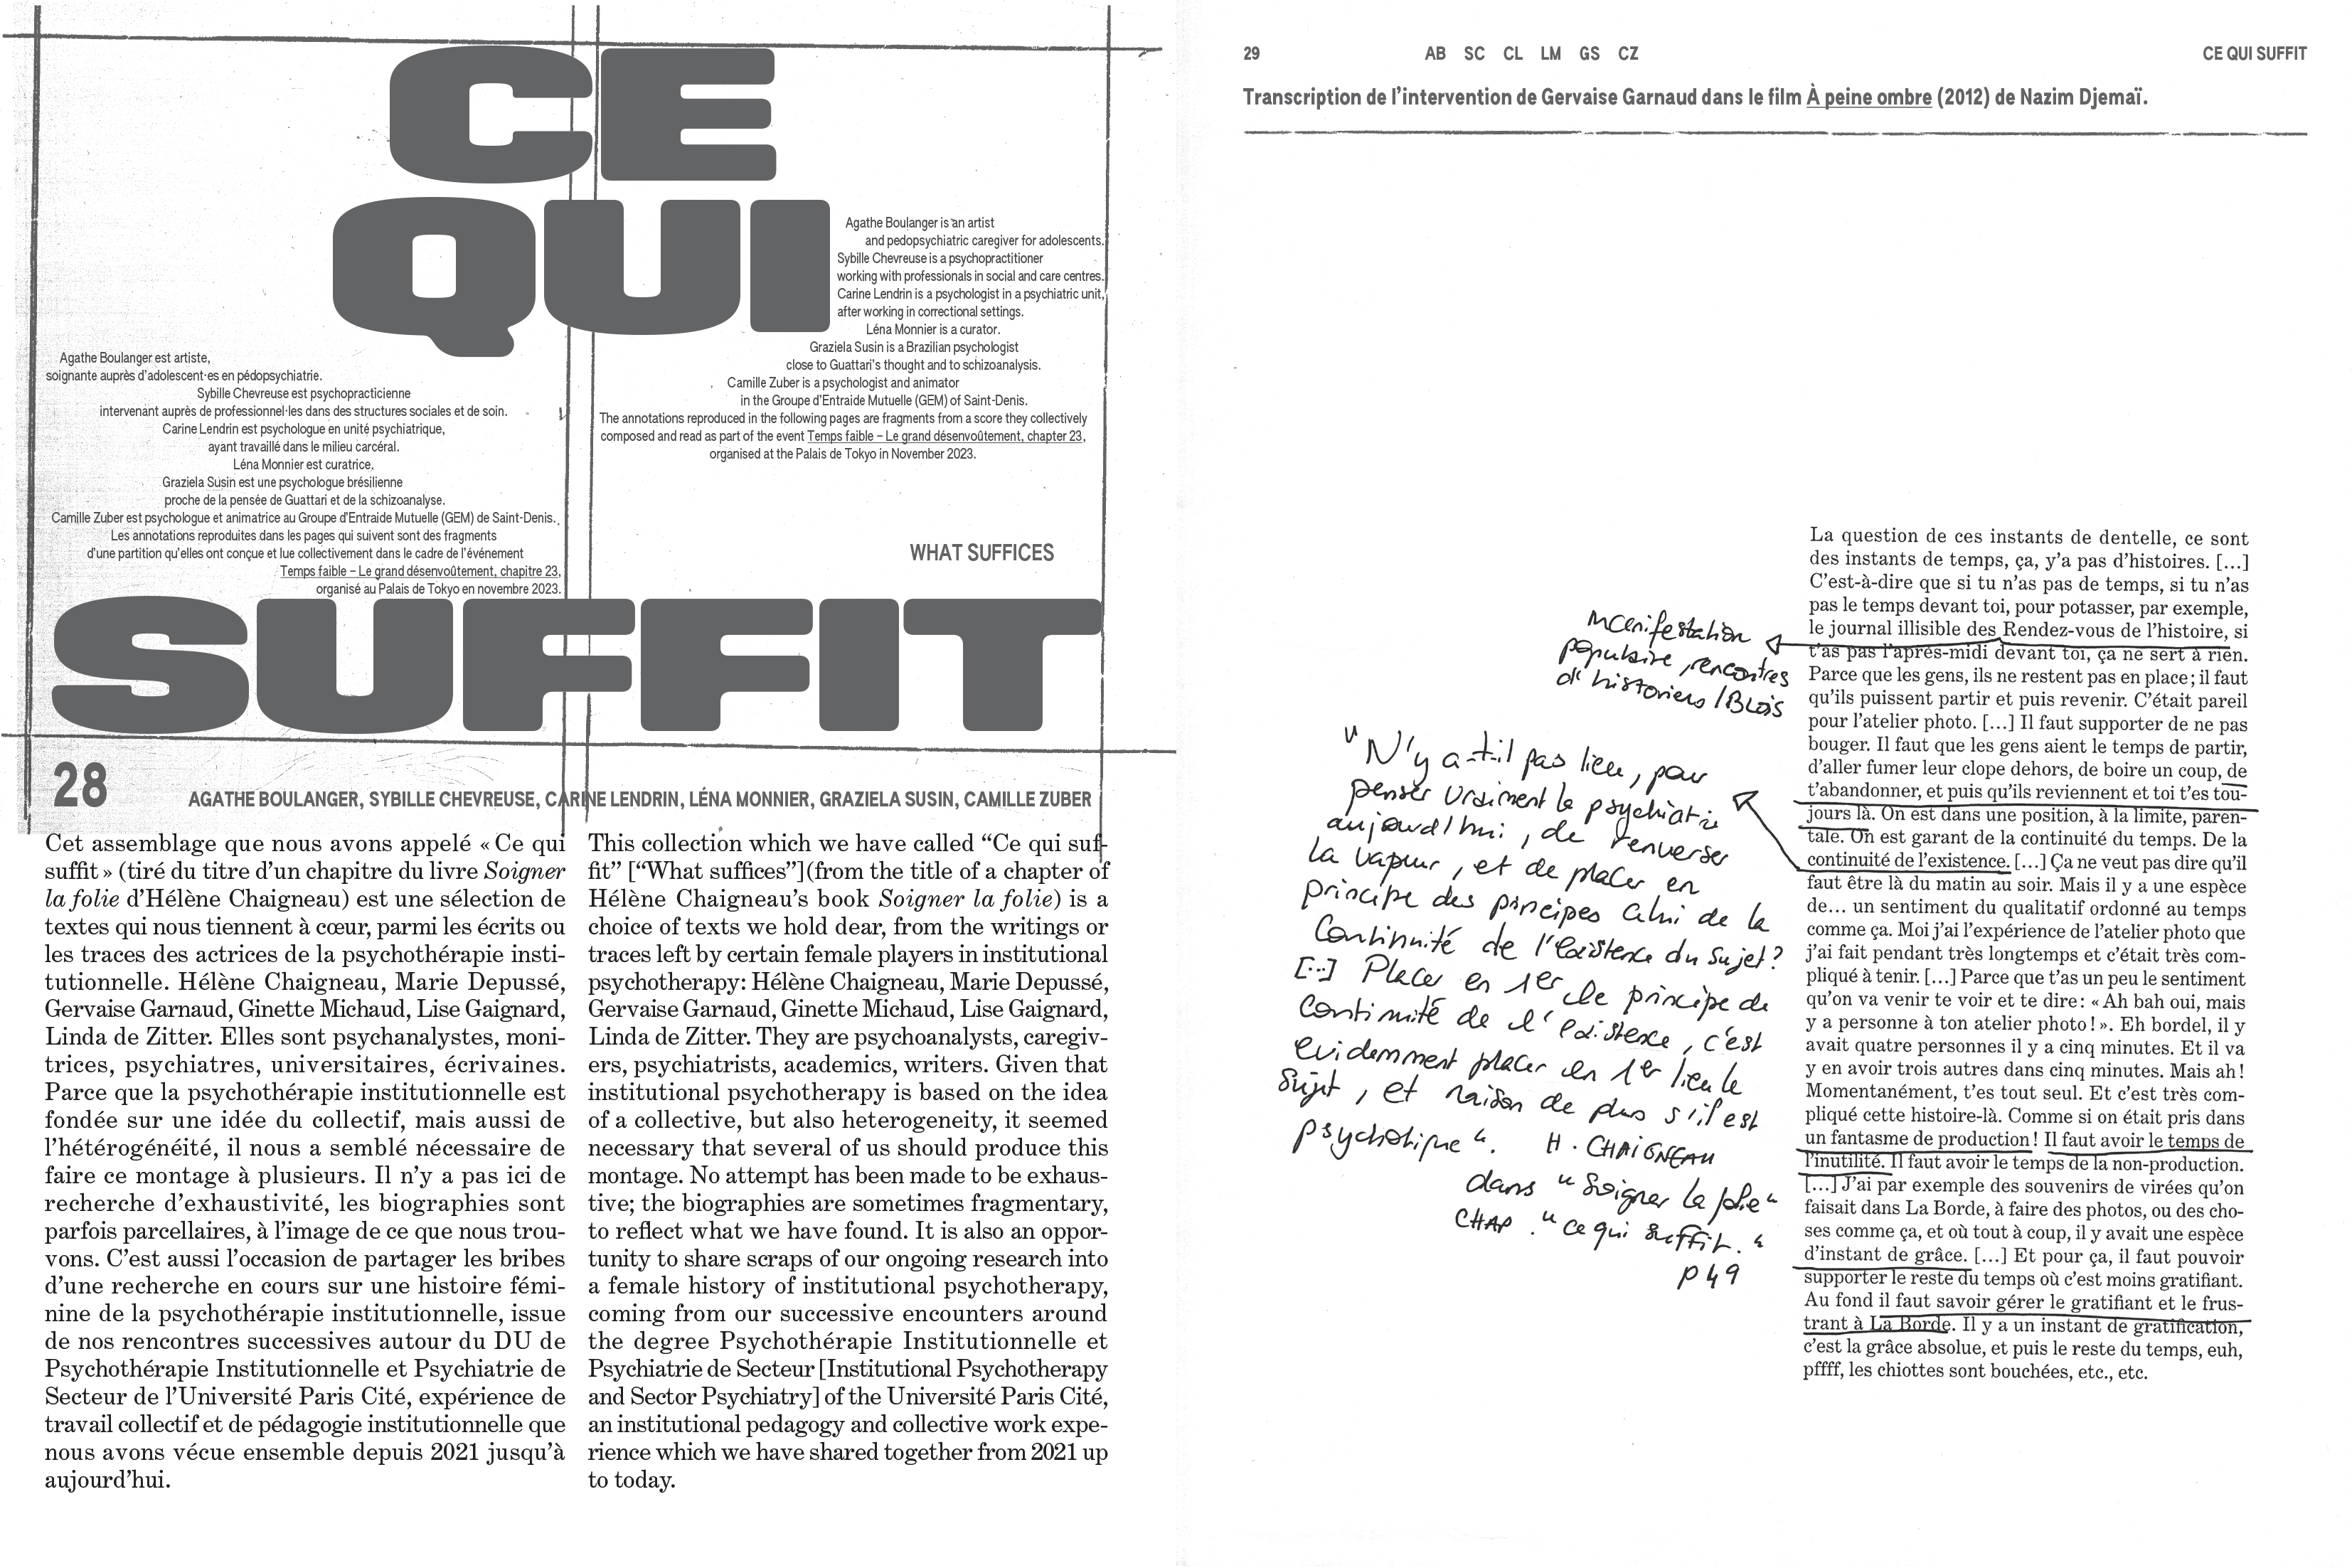 CE
QUI
Agathe Boulanger is an artist
and pedopsychiatric caregiver for adolescents.
Sybille Chevreuse is a psychopractitioner
working with professionals in social and care centres.
Carine Lendrin is a psychologist in a psychiatric unit,
after working in correctional settings.
Léna Monnier is a curator.
Graziela Susin is a Brazilian psychologist
close to Guattari's thought and to schizoanalysis.
Camille Zuber is a psychologist and animator
in the Groupe d'Entraide Mutuelle (GEM) of Saint-Denis.
The annotations reproduced in the following pages are fragments from a score they collectively
composed and read as part of the event Temps faible – Le grand désenvoûtement, chapter 23,
organised at the Palais de Tokyo in November 2023.
Agathe Boulanger est artiste,
soignante auprès d'adolescent·es en pédopsychiatrie.
Sybille Chevreuse est psychopracticienne
intervenant auprès de professionnel·les dans des structures sociales et de soin.
Carine Lendrin est psychologue en unité psychiatrique,
ayant travaillé dans le milieu carcéral.
Léna Monnier est curatrice.
Graziela Susin est une psychologue brésilienne
proche de la pensée de Guattari et de la schizoanalyse.
Camille Zuber est psychologue et animatrice au Groupe d'Entraide Mutuelle (GEM) de Saint-Denis.
Les annotations reproduites dans les pages qui suivent sont des fragments
d'une partition qu'elles ont conçue et lue collectivement dans le cadre de l'événement
Temps faible – Le grand désenvoûtement, chapitre 23,
organisé au Palais de Tokyo en novembre 2023.
WHAT SUFFICES
SUFFIT
28
AGATHE BOULANGER, SYBILLE CHEVREUSE, CARINE LENDRIN, LÉNA MONNIER, GRAZIELA SUSIN, CAMILLE ZUBER
Cet assemblage que nous avons appelé « Ce qui
suffit » (tiré du titre d'un chapitre du livre Soigner
la folie d'Hélène Chaigneau) est une sélection de
textes qui nous tiennent à cœur, parmi les écrits ou
les traces des actrices de la psychothérapie insti-
tutionnelle. Hélène Chaigneau, Marie Depussé,
Gervaise Garnaud, Ginette Michaud, Lise Gaignard,
Linda de Zitter. Elles sont psychanalystes, moni-
trices, psychiatres, universitaires, écrivaines.
Parce que la psychothérapie institutionnelle est
fondée sur une idée du collectif, mais aussi de
l'hétérogénéité, il nous a semblé nécessaire de
faire ce montage à plusieurs. Il n'y a pas ici de
recherche d'exhaustivité, les biographies sont
parfois parcellaires, à l'image de ce que nous trou-
vons. C'est aussi l'occasion de partager les bribes
d'une recherche en cours sur une histoire fémi-
nine de la psychothérapie institutionnelle, issue
de nos rencontres successives autour du DU de
Psychothérapie Institutionnelle et Psychiatrie de
Secteur de l'Université Paris Cité, expérience de
travail collectif et de pédagogie institutionnelle que
nous avons vécue ensemble depuis 2021 jusqu'à
aujourd'hui.
This collection which we have called “Ce qui suf-
fit” [“What suffices”](from the title of a chapter of
Hélène Chaigneau's book Soigner la folie) is a
choice of texts we hold dear, from the writings or
traces left by certain female players in institutional
psychotherapy: Hélène Chaigneau, Marie Depussé,
Gervaise Garnaud, Ginette Michaud, Lise Gaignard,
Linda de Zitter. They are psychoanalysts, caregiv-
ers, psychiatrists, academics, writers. Given that
institutional psychotherapy is based on the idea
of a collective, but also heterogeneity, it seemed
necessary that several of us should produce this
montage. No attempt has been made to be exhaus-
tive; the biographies are sometimes fragmentary,
to reflect what we have found. It is also an oppor-
tunity to share scraps of our ongoing research into
a female history of institutional psychotherapy,
coming from our successive encounters around
the degree Psychothérapie Institutionnelle et
Psychiatrie de Secteur [Institutional Psychotherapy
and Sector Psychiatry] of the Université Paris Cité,
an institutional pedagogy and collective work expe-
rience which we have shared together from 2021 up
to today.
29 AB SC CL LM GS CZ CE QUI SUFFIT
Transcription de l'intervention de Gervaise Garnaud dans le film À peine ombre (2012) de Nazim Djemaï.
manifestation
populaire, rencontres
d'historiens / BLOIS
" N'y a-t-il pas lieu, pour
penser vraiment la psychiatrie
aujourd'hui, de renverser
la vapeur, et de placer en
principe des principes celui de la
continuité de l'existence du sujet ?
[...] Placer en 1er le principe de
continuité de l'existence, c'est
evidemment placer en 1er lieu le
sujet, et raison de plus s'il est
psychotique ". H. CHAIGNEAU
dans " Soigner la folie "
CHAP. " ce qui suffit. "
p 49
La question de ces instants de dentelle, ce sont
des instants de temps, ça, y'a pas d'histoires. [...]
C'est-à-dire que si tu n'as pas de temps, si tu n'as
pas le temps devant toi, pour potasser, par exemple,
le journal illisible des Rendez-vous de l'histoire, si
t'as pas l'après-midi devant toi, ça ne sert à rien.
Parce que les gens, ils ne restent pas en place ; il faut
qu'ils puissent partir et puis revenir. C'était pareil
pour l'atelier photo. [...] Il faut supporter de ne pas
bouger. Il faut que les gens aient le temps de partir,
d'aller fumer leur clope dehors, de boire un coup, de
t'abandonner, et puis qu'ils reviennent et toi t'es tou-
jours là. On est dans une position, à la limite, paren-
tale. On est garant de la continuité du temps. De la
continuité de l'existence. [...] Ça ne veut pas dire qu'il
faut être là du matin au soir. Mais il y a une espèce
de... un sentiment du qualitatif ordonné au temps
comme ça. Moi j'ai l'expérience de l'atelier photo que
j'ai fait pendant très longtemps et c'était très com-
pliqué à tenir. [...] Parce que t'as un peu le sentiment
qu'on va venir te voir et te dire : « Ah bah oui, mais
y a personne à ton atelier photo ! ». Eh bordel, il y
avait quatre personnes il y a cinq minutes. Et il va
y en avoir trois autres dans cinq minutes. Mais ah !
Momentanément, t'es tout seul. Et c'est très com-
pliqué cette histoire-là. Comme si on était pris dans
un fantasme de production ! Il faut avoir le temps de
l'inutilité. Il faut avoir le temps de la non-production.
[...] J'ai par exemple des souvenirs de virées qu'on
faisait dans La Borde, à faire des photos, ou des cho-
ses comme ça, et où tout à coup, il y avait une espèce
d'instant de grâce. [...] Et pour ça, il faut pouvoir
supporter le reste du temps où c'est moins gratifiant.
Au fond il faut savoir gérer le gratifiant et le frus-
trant à La Borde. Il y a un instant de gratification,
c'est la grâce absolue, et puis le reste du temps, euh,
pffff, les chiottes sont bouchées, etc., etc.